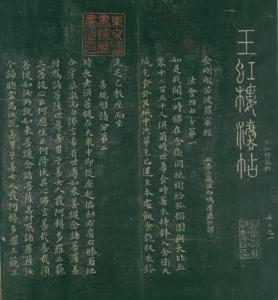 樓灋帖
金剛般若波羅蜜經
法會因由分第一
如是我聞一時佛在舍衛國祇樹給孤獨園與大比丘
眾千二百五十人俱爾時世尊食時著衣持鉢入舍衛大
城乞食於其城中次第乞已還至本處飯食訖收衣鉢
洗足已敷座而坐
善現啟請分第二
時長老須菩提在大眾中即從座起偏袒右肩右膝著地
合掌恭敬而白佛言希有世尊如來善護念諸菩薩善
付囑諸菩薩世尊善男子善女人發阿耨多羅三藐
三菩提心云何應住云何降伏其心佛言善哉善哉須
菩提如汝所說如來善護念諸菩薩善付囑諸菩薩汝
今諦聽當為汝說善男子善女人發阿耨多羅三藐三